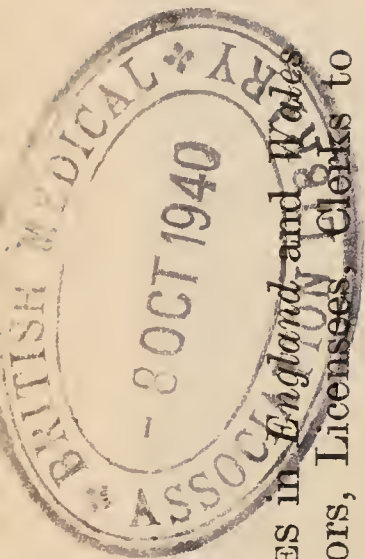 BRITISH MEDICAL
ASSOCIATION LIBRARY
- 8 OCT 1940
ES in England and Wales
ors, Licensees, Clerks to